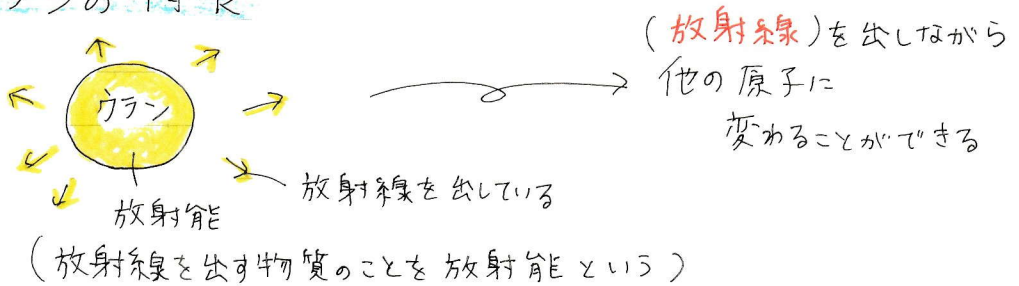 ウラン
放射能
放射線を出している
(放射線)を出しながら
他の原子に
変わることができる
(放射線を出す物質のことを放射能という)